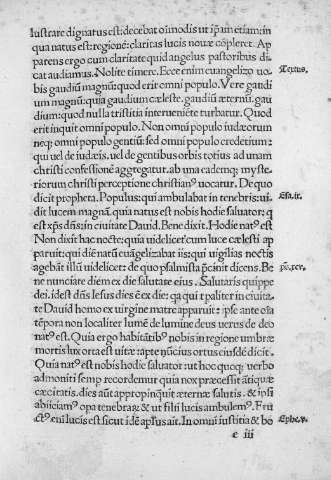 lustrare dignatus est: decebat oĩmodis ut ip̃am etiam: in
qua natus est: regionẽ: claritas lucis nouæ cõpleret. Ap
parens ergo cum claritate quid angelus pastoribus di
cat audiamus. Nolite timere. Ecce enim euangelizo uo
bis gaudiũ magnũ: quod erit omni populo. Vere gaudi
um magnũ: quia gaudium cæleste. gaudiũ æternũ. gau
dium: quod nulla tristitia interueniẽte turbatur. Quod
erit inquit omni populo. Non omni populo iudæorum
neq; omni populo gentiũ: sed omni populo credetium:
qui uel de iudæis. uel de gentibus orbis totius ad unam
christi confessionẽ aggregatur. ab una eademq; myste
riorum christi perceptione christianꝰ uocatur. De quo
dicit propheta. Populus: qui ambulabat in tenebris: ui
dit lucem magnã. quia natus est nobis hodie saluator: q
est xp̃s dñs: in ciuitate Dauid. Bene dixit. Hodie natꝰ est
Non dixit hac nocte: quia uidelicet cum luce cælesti ap
paruit: qui diẽ natũ euãgelizabat iis: qui uigilias noctis
agebãt illũ uidelicet: de quo psalmista p̃cinit dicens. Be
ne nunciate diem ex die salutare eius. Salutaris quippe
dei. idest dñs Iesus dies ẽ ex die: qa qui tp̃aliter in ciuita
te Dauid homo ex uirgine matre apparuit: ipse ante oĩa
tẽpora non localiter lumẽ de lumine deus uerus de deo
natꝰ est. Quia ergo habitãtibꝰ nobis in regione umbræ
mortis lux orta est uitæ: apte nũcius ortus eiusdẽ dicit.
Quia natꝰ est nobis hodie saluator: ut hoc quoq; uerbo
admoniti semp recordemur quia nox præcessit ãtiquæ
cæcitatis. dies aũt appropinquit æternæ salutis. & ipsi
abiiciamꝰ opa tenebraꝝ & ut filii lucis ambulemꝰ. Fru
ctꝰ em̃ lucis est sicut idẽ apl̃us ait. In omni iustitia & bo
e iii
Textus.
Esa.ix.
Ephe.v.